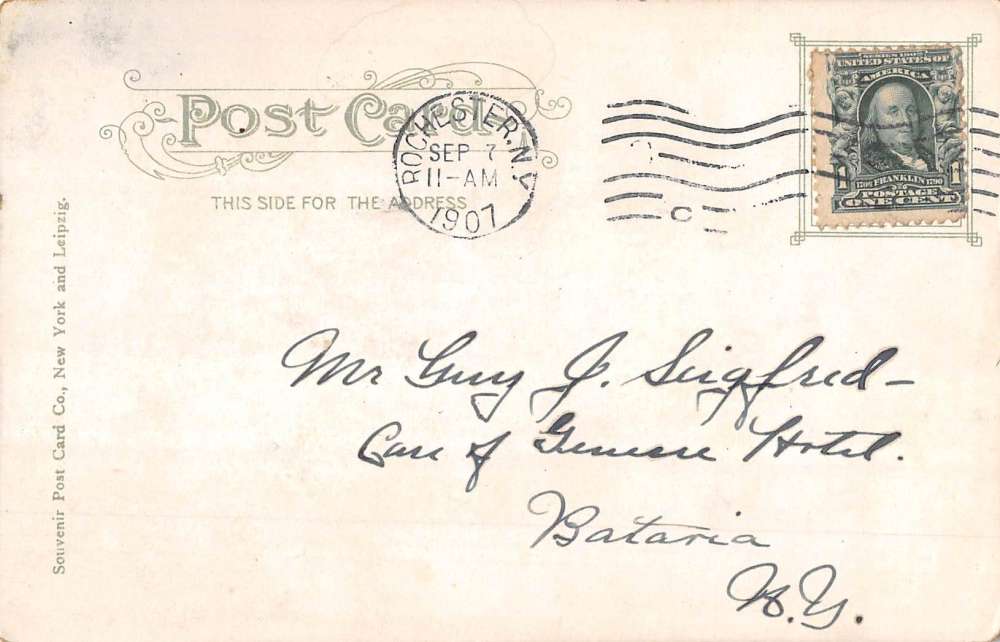 Post Card
THIS SIDE FOR THE ADDRESS
ROCHESTER, N.Y.
SEP 7
11-AM
1907
C
SERIES 1902
UNITED STATES OF
AMERICA
1706 FRANKLIN 1790
POSTAGE
1 1
ONE CENT
Mr Guy J. Seigfred-
Care of Genesee Hotel.
Batavia
N.Y.
Souvenir Post Card Co., New York and Leipzig.